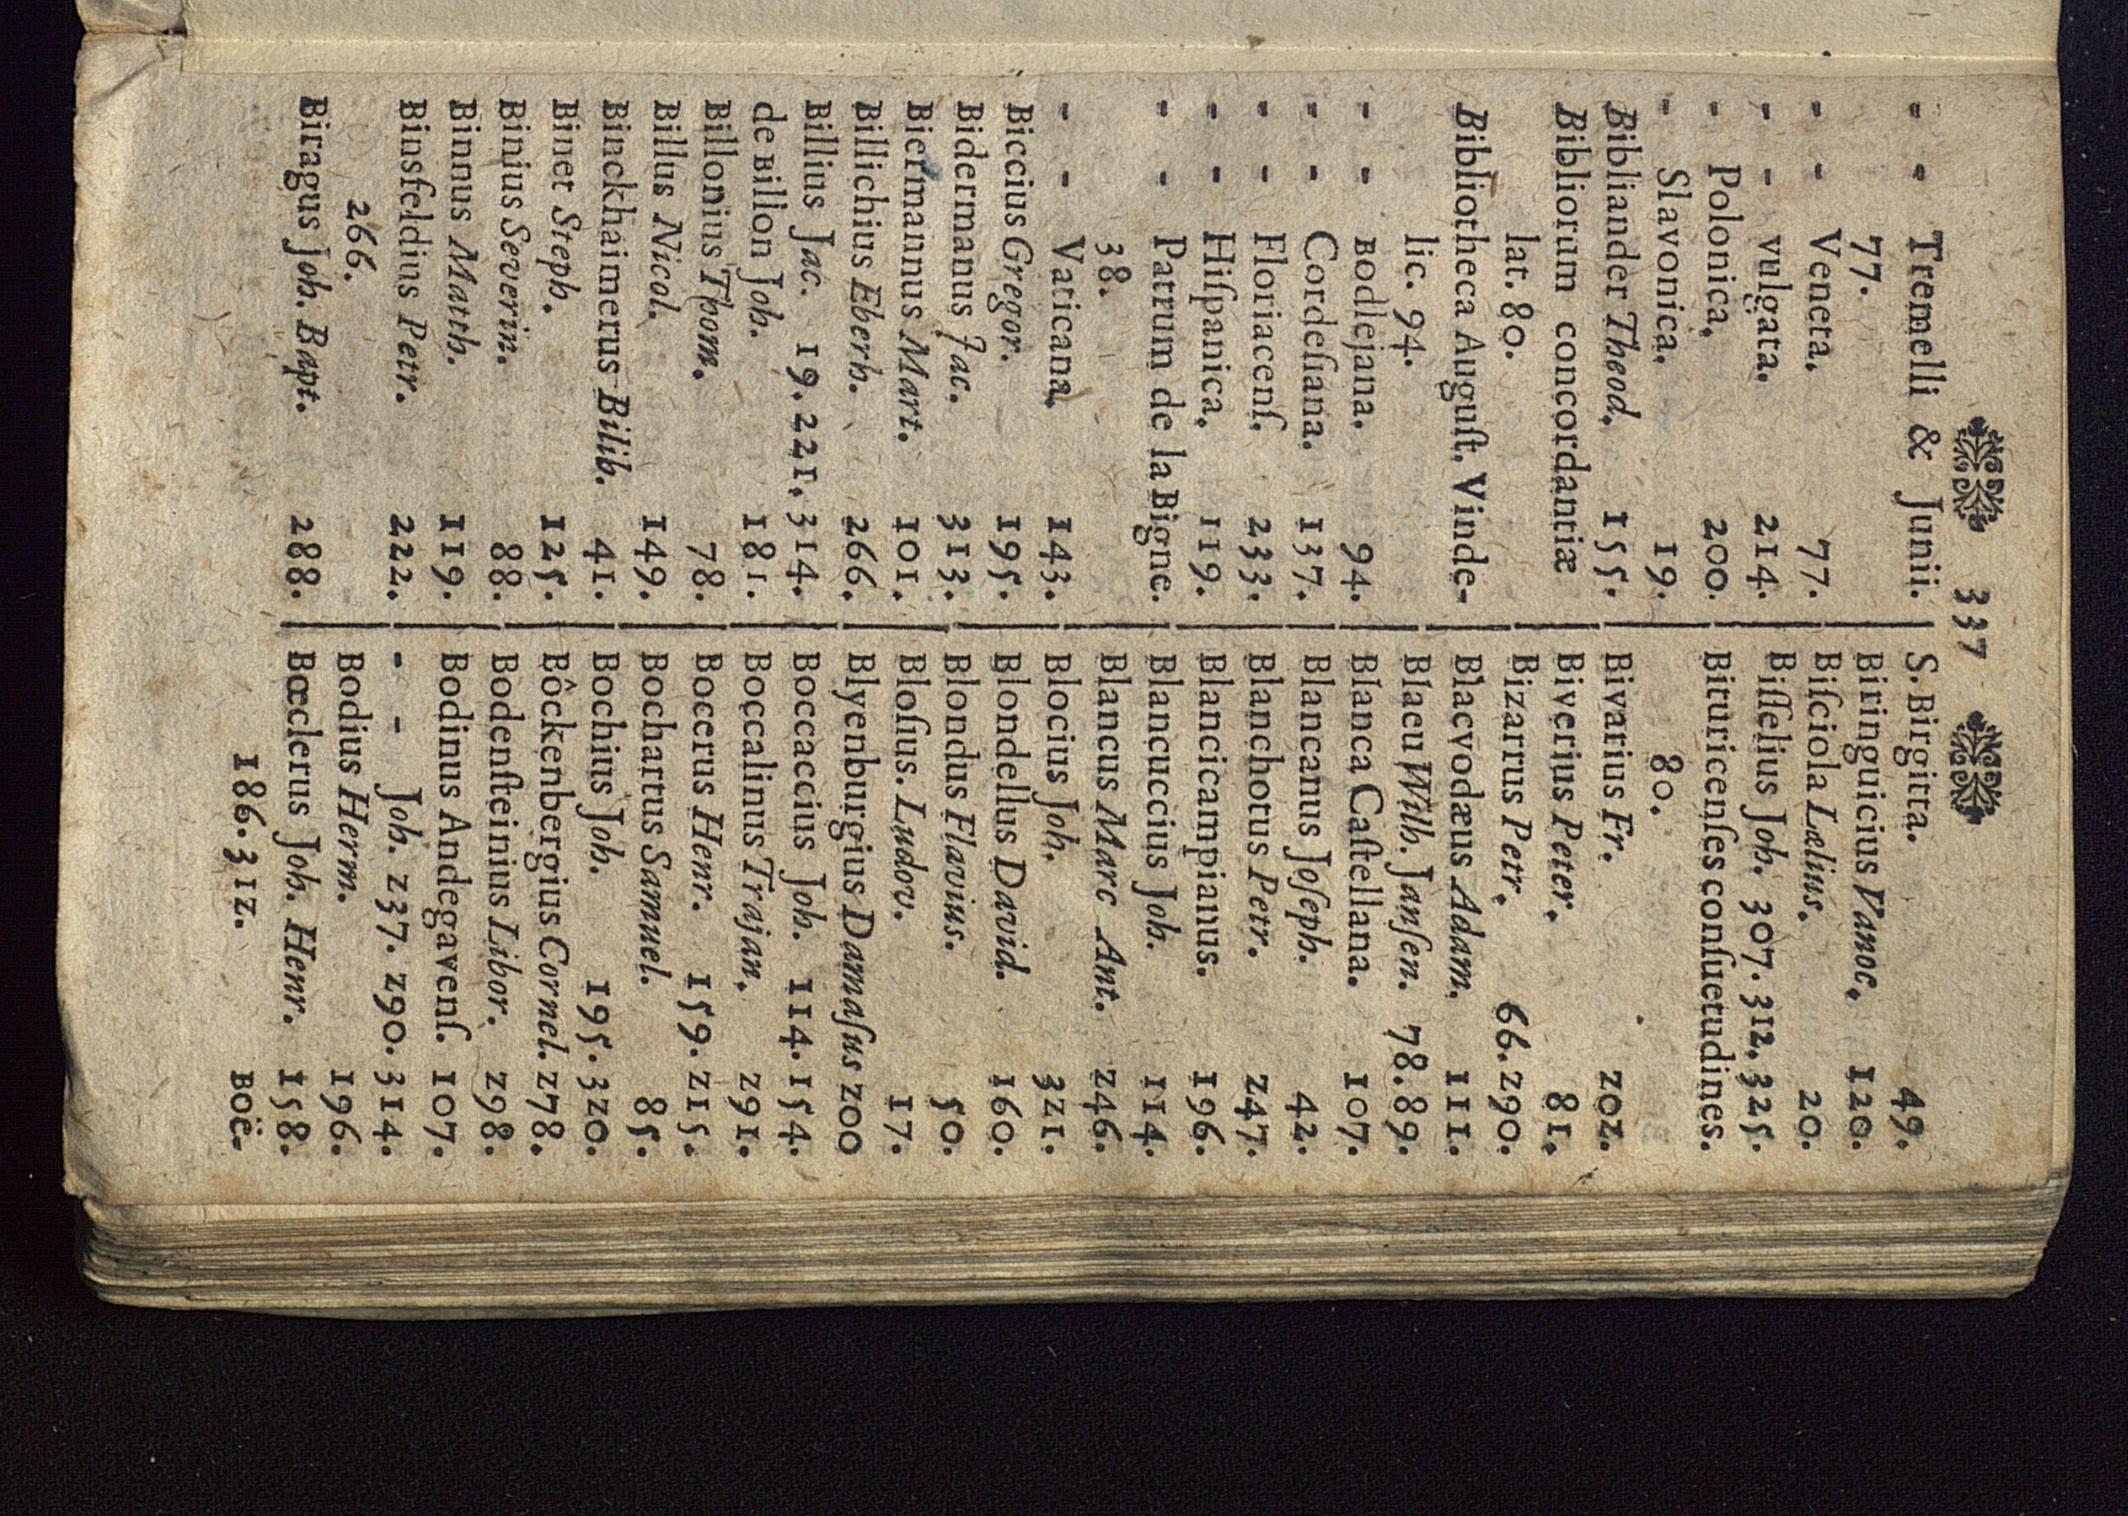 337
- - Tremelli & Junii.
77.
- - Veneta. 77.
- - vulgata. 214.
- Polonica. 200.
- Slavonica. 19.
Bibliander Theod. 155.
Bibliorum concordantiæ
lat. 80.
Bibliotheca Auguſt. Vinde-
lic. 94.
- - Bodlejana. 94.
- - Cordeſiana. 137.
- - Floriacenſ. 233.
- - Hiſpanica. 119.
- - Patrum de la Bigne.
38.
- - Vaticana. 143.
Biccius Gregor. 195.
Bidermanus Jac. 313.
Biermannus Mart. 101.
Billichius Eberh. 266.
Billius Jac. 19. 221. 314.
de Billon Joh. 181.
Billonius Thom. 78.
Billus Nicol. 149.
Binckhaimerus Bilib. 41.
Binet Steph. 125.
Binius Severin. 88.
Binnus Matth. 119.
Binsfeldius Petr. 222.
266.
Biragus Joh. Bapt. 288.
S. Birgitta. 49.
Biringuicius Vanoc. 120.
Biſciola Lælius. 20.
Biſſelius Joh. 307. 312. 325.
Bituricenſes conſuetudines.
80.
Bivarius Fr. 202.
Biverius Peter. 81.
Bizarrus Petr. 66. 290.
Blacvodæus Adam. 111.
Blaeu Wilh. Janſen. 78. 89.
Blanca Caſtellana. 107.
Blancanus Joſeph. 42.
Blanchotus Petr. 247.
Blancicampianus. 196.
Blancuccius Joh. 114.
Blancus Marc Ant. 246.
Blocius Joh. 321.
Blondellus David. 160.
Blondus Flavius. 50.
Bloſius. Ludov. 17.
Blyenburgius Damaſus 200
Boccaccius Joh. 114. 154.
Boccalinus Trajan. 291.
Bocerus Henr. 159. 215.
Bochartus Samuel. 85.
Bochius Joh. 195. 320.
Bôckenbergius Cornel. 278.
Bodenſteinius Libor. 298.
Bodinus Andegavenſ. 107.
- - Joh. 237. 290. 314.
Bodius Herm. 196.
Bœclerus Joh. Henr. 158.
186. 312.
Boë-